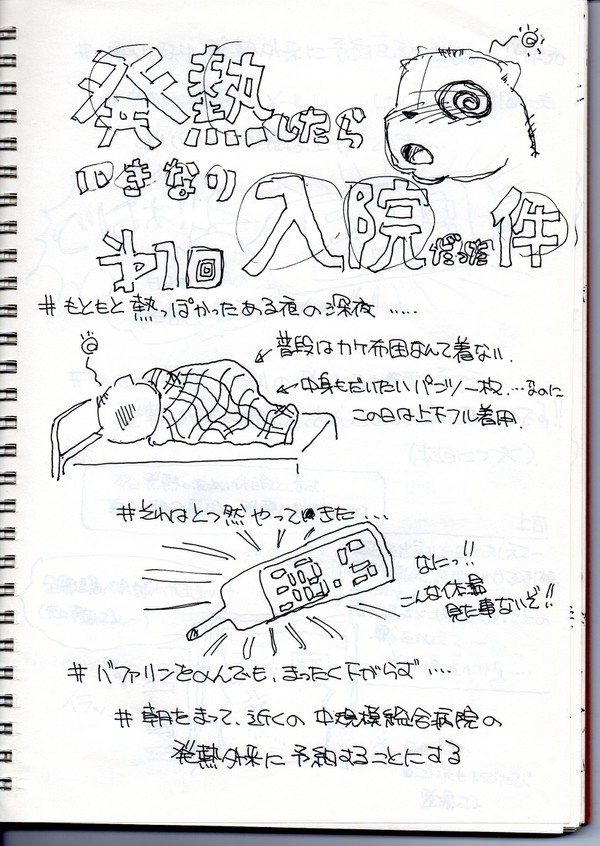 発熱したら
いきなり
入院だった件
才1回
#もともと熱っぽかったある夜の深夜.....
普段はカケ布団なんて着ない.
中身もだいたいパンツ一枚....なのに
この日は上下フル着用.
#それはとつ然やってきた...
なにっ!!
こんな体温
見た事ないぞ!!
#バファリンをのんでも、まったく下がらず....
#朝をまって、近くの中規模総合病院の
発熱外来に予約することにする